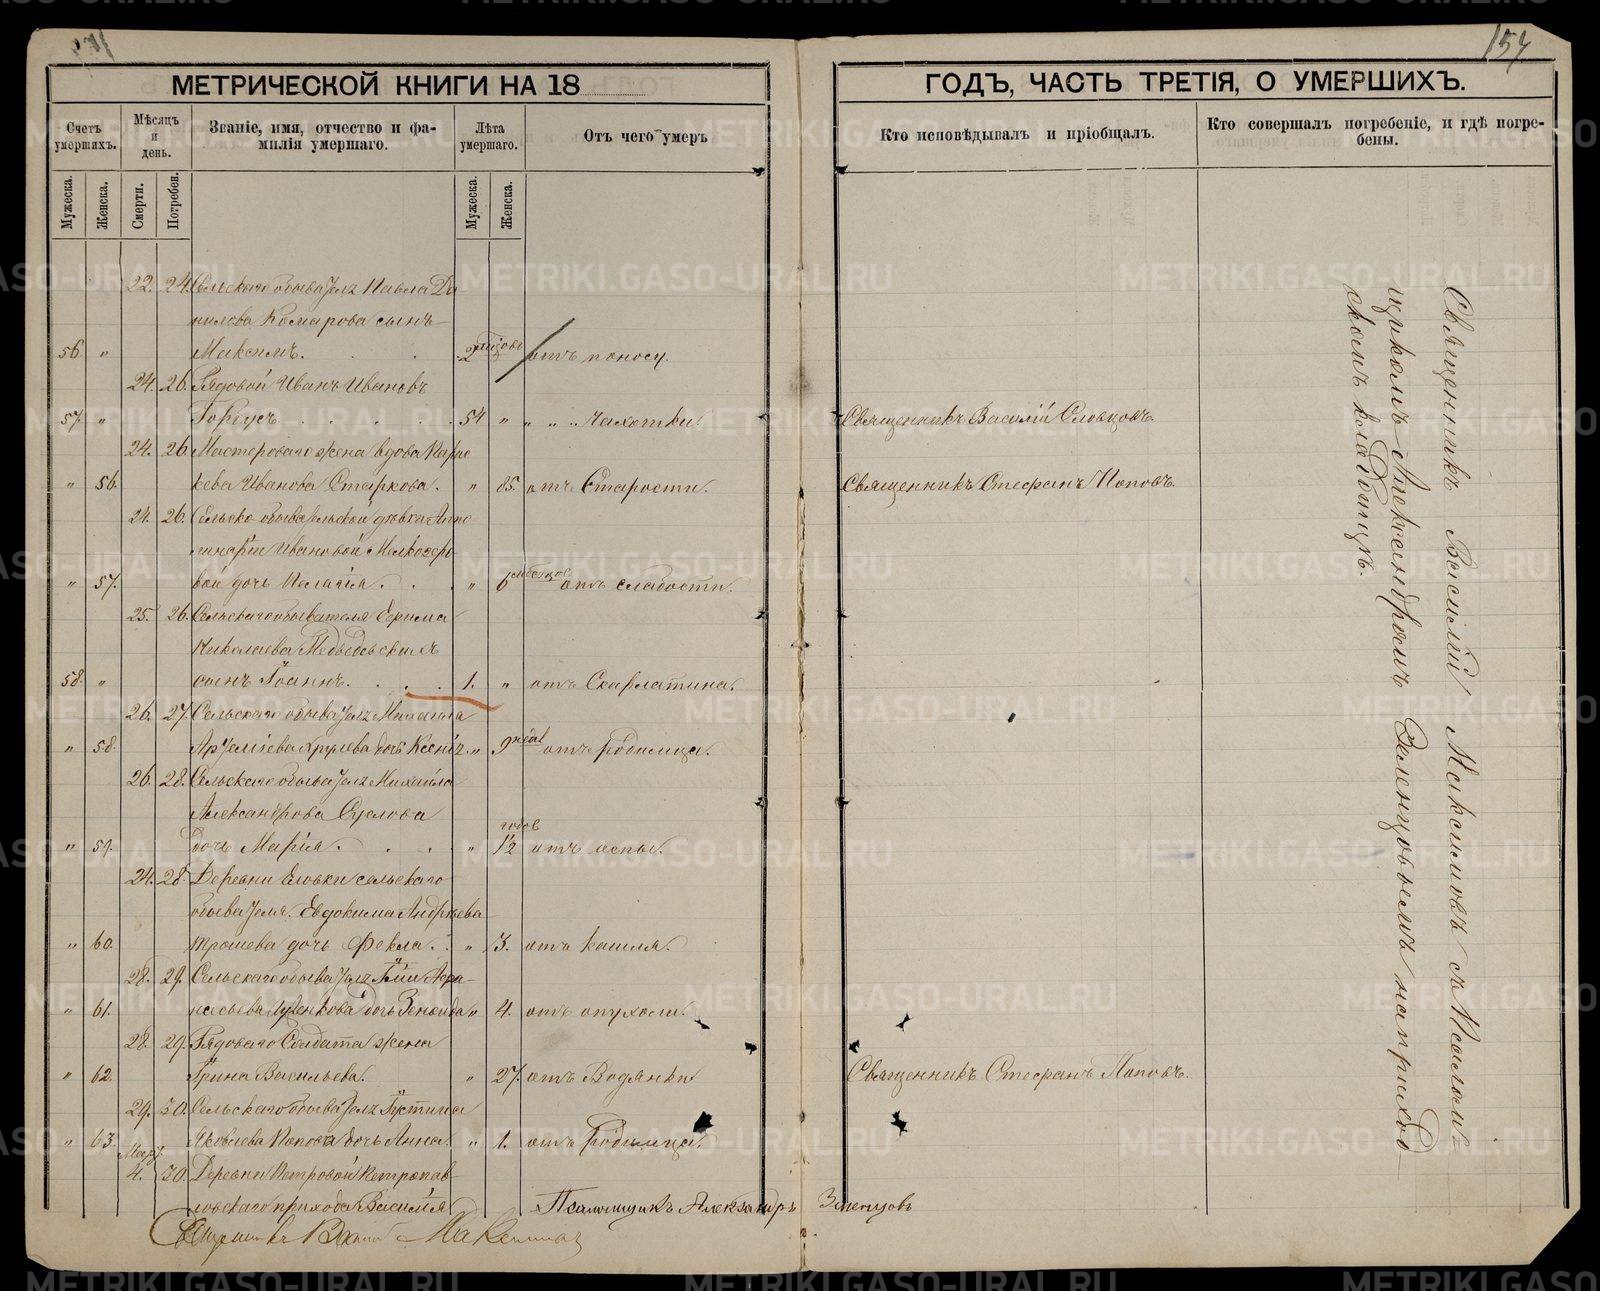 157.
МЕТРИЧЕСКОЙ КНИГИ НА 18
ГОДЪ, ЧАСТЬ ТРЕТІЯ, О УМЕРШИХЪ.
Счетъ умершихъ.
Мѣсяцъ и день.
Званіе, имя, отчество и фа-
милія умершаго.
Лѣта умершаго.
Отъ чего умеръ
Кто исповѣдывалъ и пріобщалъ.
Кто совершалъ погребеніе, и гдѣ погре-
бены.
Мужеска.
Женска.
Смерти.
Погребен.
Мужеска.
Женска.
22. 24. Сельскаго обывателя Павла Да-
нилова Комарова сынъ
56. " Максимъ. 2 отъ поносу.
24. 26. Рядовой Иванъ Ивановъ
57. " 54 " " " " чахотки.
Священникъ Василій Словцовъ.
24. 26. Мастероваго жена вдова
" 56. Иванова Старкова. " 85. отъ Старости.
Священникъ Стефанъ Поповъ.
24. 26. Сельско-обывательской дѣвки Аппо-
линаріи Ивановой Мелкозеро-
" 57. вой дочь Пелагія. " 6 мѣсяцов отъ слабости.
25. 26. Сельскаго обывателя Ефима
Николаева Медвѣдевскихъ
58. " сынъ Іоаннъ. 1. " отъ Скарлатина.
26. 27. Сельскаго обывателя Михаила
" 58. Хрулева дочь Ксенія. " 9 недѣл отъ родимца.
26. 28. Сельскаго обывателя Михаила
Александрова Суслова
" 59. дочь Марія. " 1½ годов отъ оспы.
24. 28. Деревни Еловки сельскаго
обывателя Евдокима Андрѣева
" 60. Трошева дочь Фекла. " 3. отъ кашля.
28. 29. Сельскаго обывателя Іліи Афа-
" 61. насьева дочь Зиновія " 4. отъ опухоли.
28. 29. Рядоваго Солдата жена
" 62. Ірина Васильева. " 27. отъ Водянки
Священникъ Стефанъ Поповъ.
29. 30. Сельскаго обывателя Іустина
" 63. Яковлева Попова дочь Анна. " 1. отъ Родимца.
4. 30. Деревни Петровой Петропав-
ловскаго прихода Василія
Священникъ Василій Максимовъ съ Псалом-
щикомъ Александромъ Зеленцовымъ на приход-
скомъ кладбищѣ.
Псаломщикъ Александръ Зеленцовъ
Священникъ Василій Максимовъ
METRIKI.GASO-URAL.RU